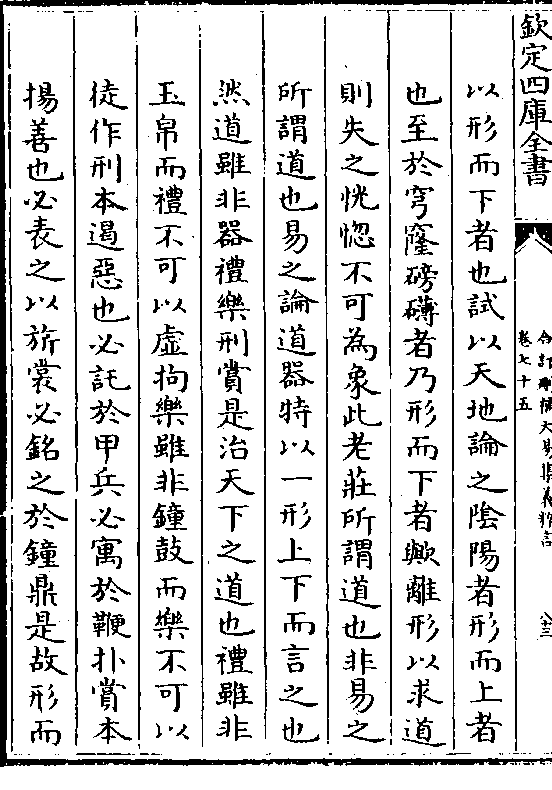 欽定四庫全書
合訂刪補大易集義粹言
卷七十五
以形而下者也試以天地論之陰陽者形而上者
也至於穹窿磅礴者乃形而下者歟離形以求道
則失之恍惚不可為象此老莊所謂道也非易之
所謂道也易之論道器特以一形上下而言之也
然道雖非器禮樂刑賞是治天下之道也禮雖非
玉帛而禮不可以虛拘樂雖非鐘鼓而樂不可以
徒作刑本遏惡也必託於甲兵必寓於鞭扑賞本
揚善也必表之以旂裳必銘之於鐘鼎是故形而